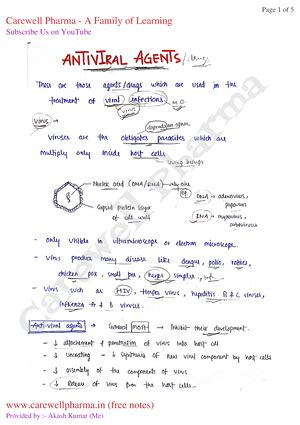 Carewell Pharma - A Family of Learning
Page 1 of 5
Subscribe Us on YouTube
ANTIVIRAL AGENTS / Drugs
These are those agents/drugs which are used in the
treatment of viral infections. M.O
virus
dependent on other
VIRUS
viruses are the obligate parasites which are
multiply only inside host cells
living beings
Nucleic acid (DNA/RNA) → only one
DNA → adenovirus,
Capsid protein layer
of cell wall
RNA →
- only visible in ultramicroscope or electron microscope.
- virus produce many disease like dengue, polio, rabies,
chicken pox, small pox, herpes simplex,
- virus such as HIV, herpes virus, hepatitis B & C viruses,
influenza A & B viruses.
Anti viral agents → Inhibit their development.
- ↓ attachment & penetration of virus into host cell
- ↓ uncoating - ↓ synthesis of new viral component by host cells
- ↓ assembly of the components
- ↓ Release of virus from the host cells.
Carewell Pharma
www.carewellpharma.in (free notes)
Provided by :- Akash Kumar (Me)